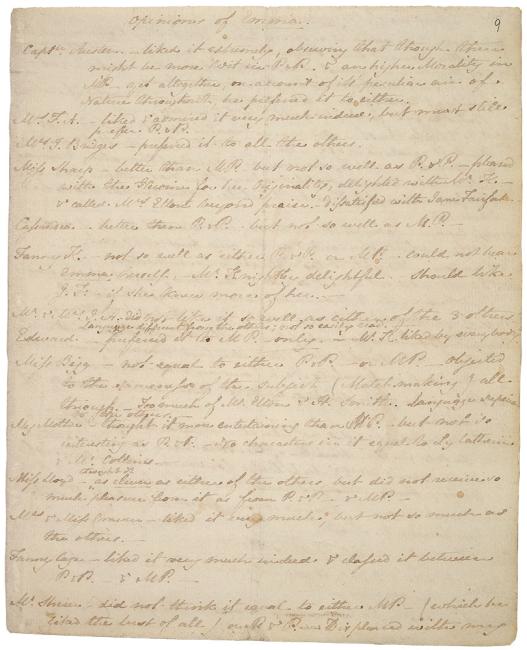 9
Opinions of Emma.
Captn. Austen. - liked it extremely, observing that though there
might be more Wit in P & P - & an higher Morality in
MP - yet altogether, on account of it's peculiar air of
Nature throughout, he preferred it to either.
Mrs. F. A. - liked & admired it very much indeed, but must still
prefer P. & P.
Mrs. J. Bridges - preferred it to all the others.
Miss Sharp - better than MP. - but not so well as P. & P. - pleased
with the Heroine for her Originality, delighted with Mr. K -
& called Mrs. Elton beyond praise. - dissatisfied with Jane Fairfax.
Cassandra - better than P. & P. - but not so well as M. P. -
Fanny K. - not so well as either P. & P. or MP. - could not bear
Emma herself. - Mr. Knightley delightful. - Should like
J. F. - if she knew more of her. -
Mr. & Mrs. J. A. - did not like it so well as either of the 3 others.
Language different from the others; not so easily read. -
Edward - preferred it to MP. - only. - Mr. K. liked by every body.
Miss Bigg - not equal to either P & P. - or MP. - objected
to the sameness of the subject (Match-making) all
through. - Too much of Mr. Elton & H. Smith. Language superior
to the others. -
My Mother - thought it more entertaining than MP. - but not so
interesting as P. & P. - No characters in it equal to Ly Catherine
& Mr. Collins. -
Miss Lloyd - thought it as clever as either of the others, but did not receive so
much pleasure from it as from P. & P. - & MP. -
Mrs. & Miss Craven - liked it very much, but not so much as
the others. -
Fanny Cage - liked it very much indeed & classed it between
P & P. - & MP. -
Mr. Sherer - did not think it equal to either MP - (which he
liked the best of all) or P & P. - Displeased with my